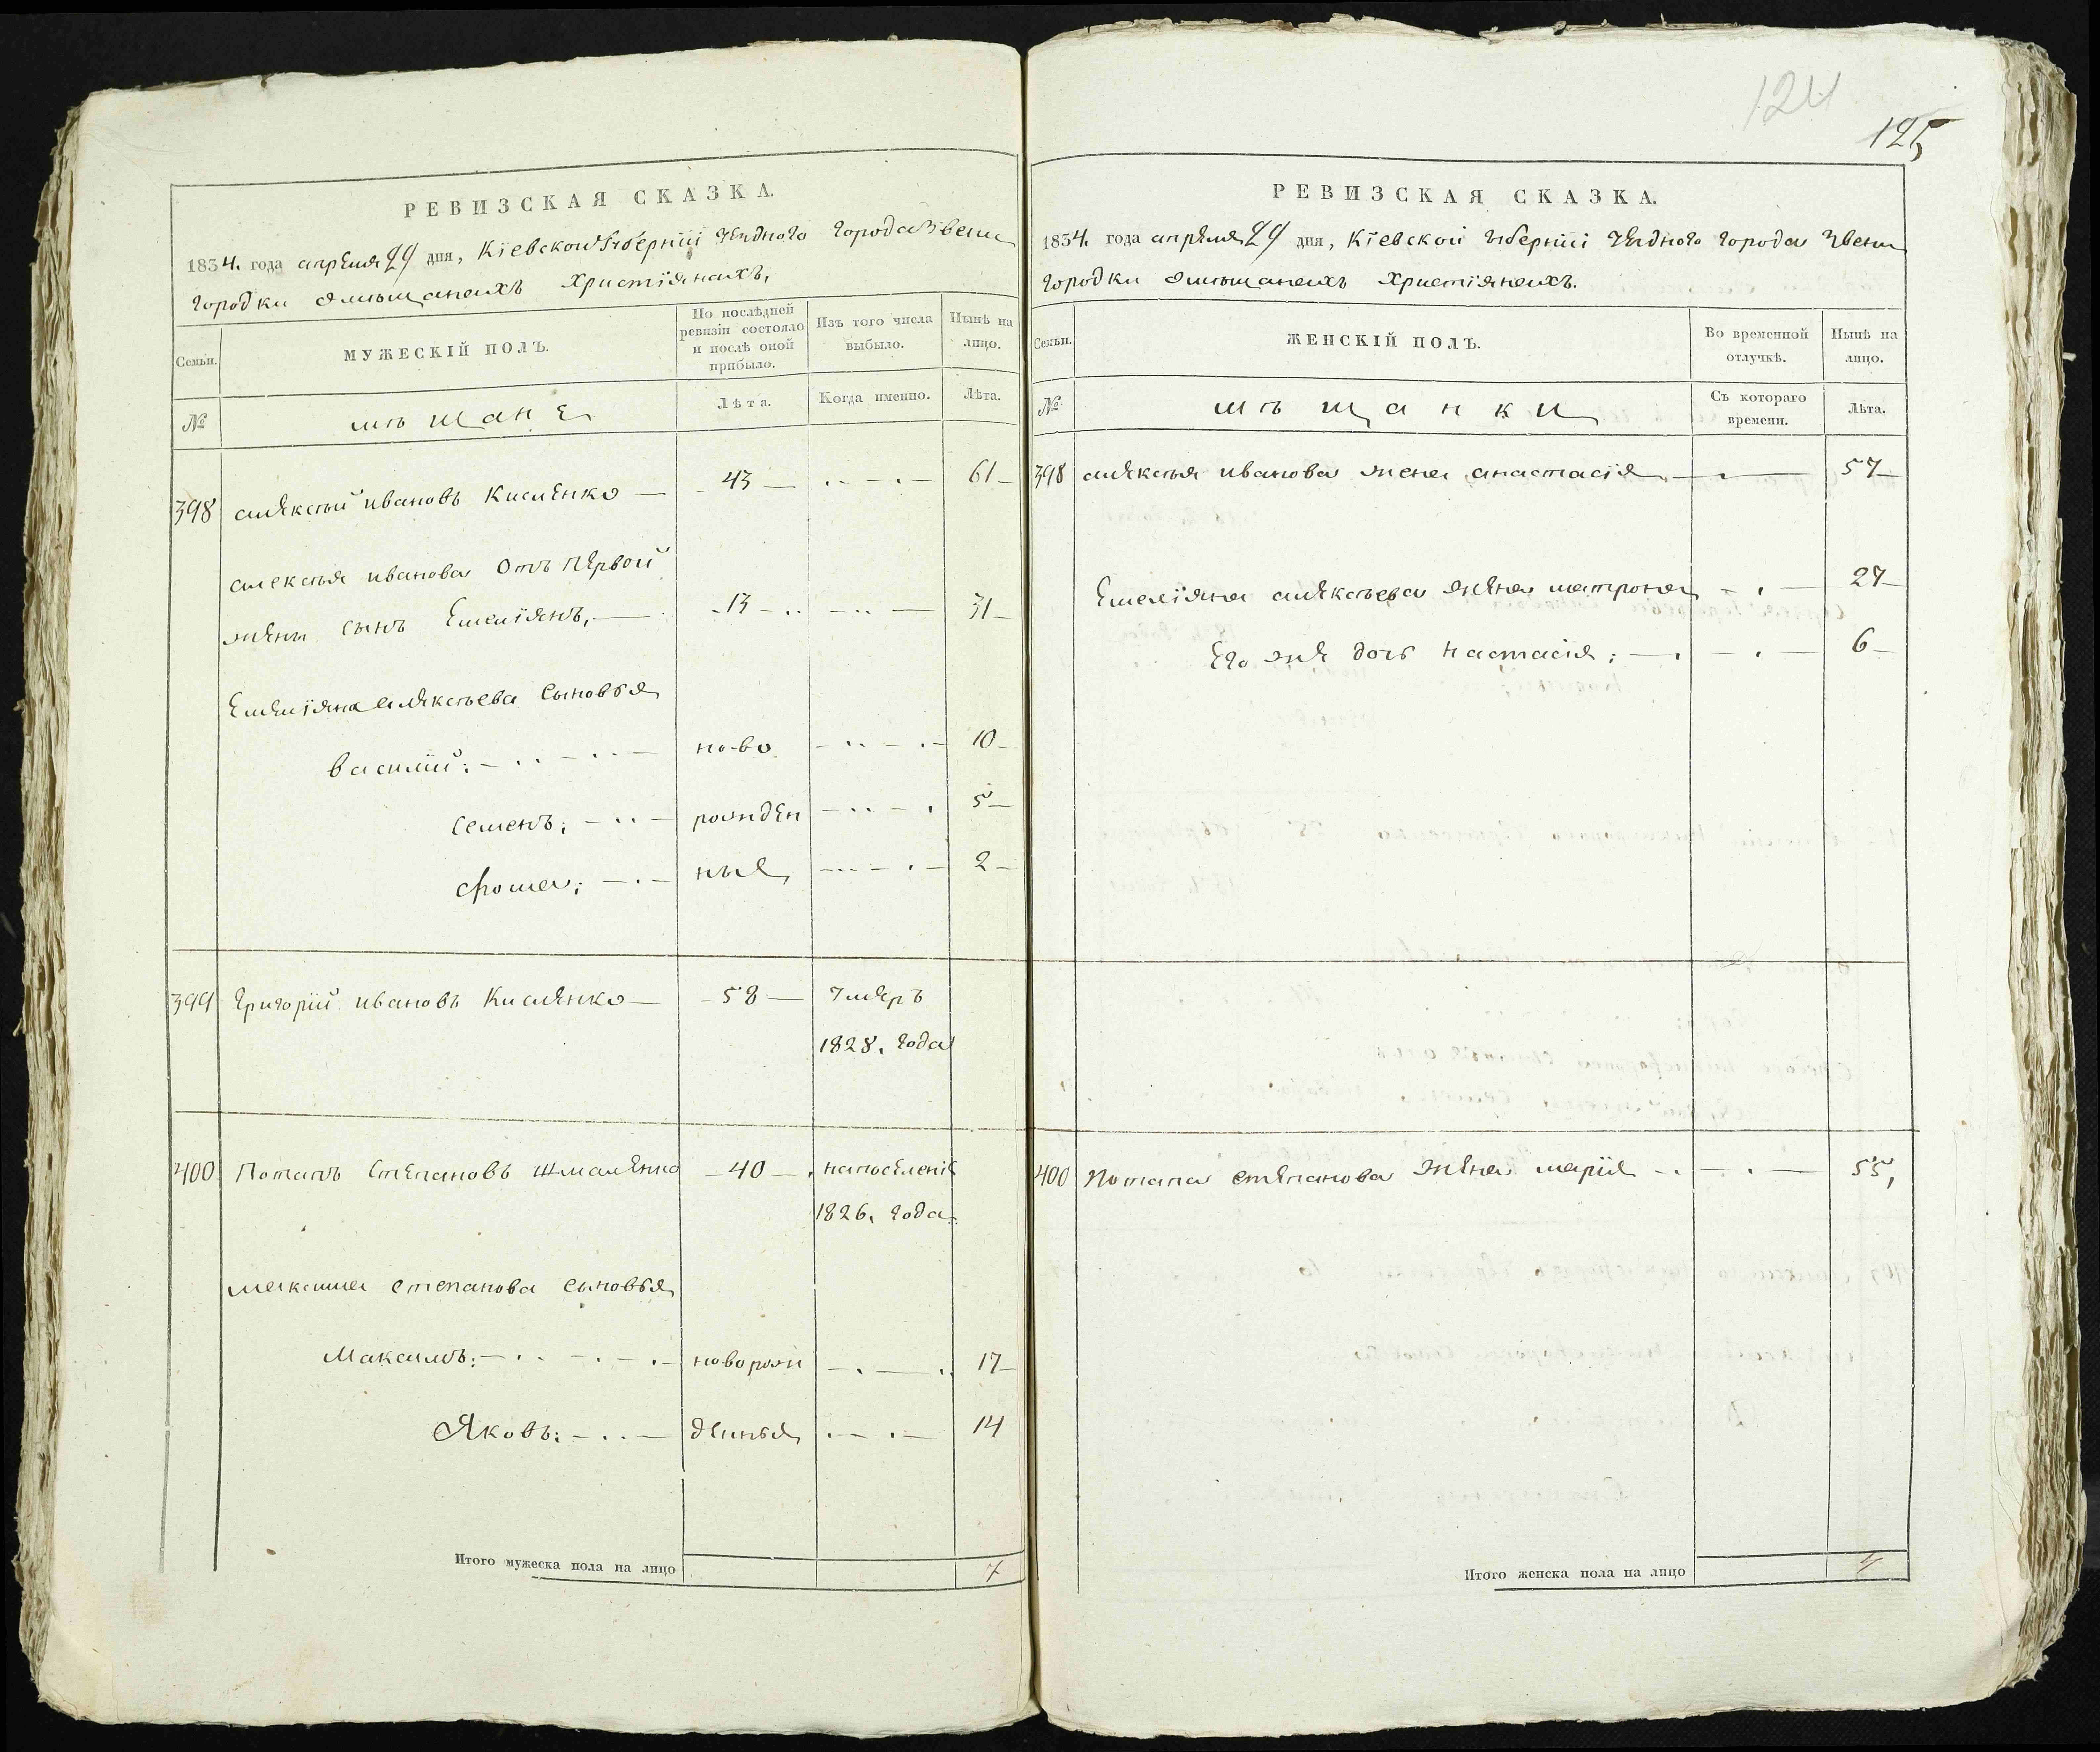 124
125
РЕВИЗСКАЯ СКАЗКА.
1834. года апреля 24 дня, Кіевской Губерніи уездного города Звени
городки омыщанехъ христіянахъ,
Семьи. МУЖЕСКІЙ ПОЛЪ. По послѣдней ревизіи состояло и послѣ оной прибыло. Изъ того числа выбыло. Нынѣ на лицо.
№ мѣщане Лѣта. Когда именно. Лѣта.
398 алексѣй ивановъ Кисленко — 43 — 61
алексѣя иванова отъ первой
жены сынъ Емеліянъ, — 13 — 31
Емеліяна алексѣева сыновья
василій: ново 10
семенъ; рожден 5
фома; ные 2
399 григорій ивановъ Кисленко — 58 — умеръ
1828. года
400 Потапъ степановъ — 40 — напоселеніе
1826. года
максима степанова сыновья
Максимъ: новорож 17
Яковъ: денные 14
Итого мужеска пола на лицо 7
РЕВИЗСКАЯ СКАЗКА.
1834. года апреля 24 дня, Кіевской губерніи уездного города Звени
городки омыщанехъ христіянехъ.
Семьи. ЖЕНСКІЙ ПОЛЪ. Во временной отлучкѣ. Нынѣ на лицо.
№ мѣщанки Съ котораго времени. Лѣта.
398 алексѣя иванова жена анастасія 57
Емеліяна алексѣева жена матрона 27
Его же дочь настасія; 6
400 Потапа степанова жена марія 55,
Итого женска пола на лицо 4